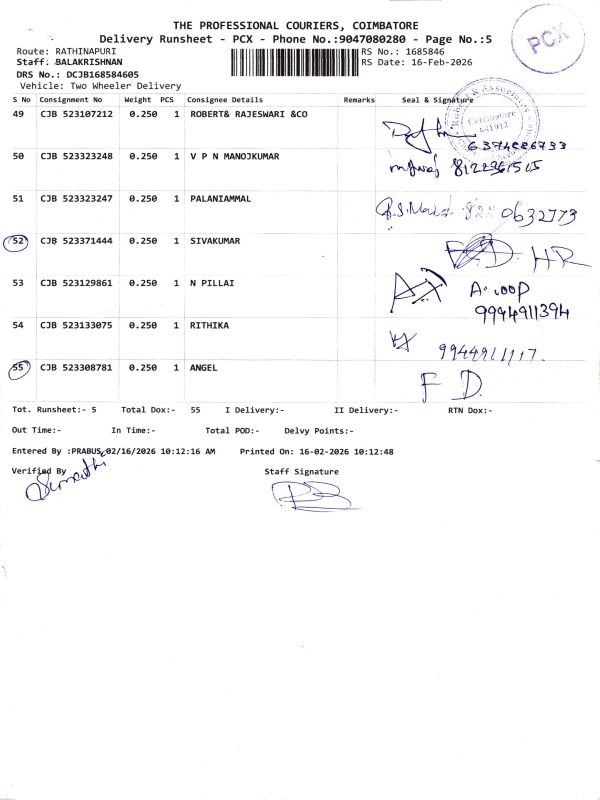 THE PROFESSIONAL COURIERS, COIMBATORE
Delivery Runsheet - PCX - Phone No.:9047080280 - Page No.:5
PCX
Route: RATHINAPURI
RS No.: 1685846
Staff: BALAKRISHNAN
RS Date: 16-Feb-2026
DRS No.: DCJB168584605
Vehicle: Two Wheeler Delivery
S No Consignment No Weight PCS Consignee Details Remarks Seal & Signature
49 CJB 523107212 0.250 1 ROBERT& RAJESWARI &CO
& Associates
Coimbatore
641012
6374886733
50 CJB 523323248 0.250 1 V P N MANOJKUMAR
51 CJB 523323247 0.250 1 PALANIAMMAL
8220632773
52 CJB 523371444 0.250 1 SIVAKUMAR
HR
53 CJB 523129861 0.250 1 N PILLAI
9994911394
54 CJB 523133075 0.250 1 RITHIKA
9944911117.
55 CJB 523308781 0.250 1 ANGEL
F D.
Tot. Runsheet:- 5 Total Dox:- 55 I Delivery:- II Delivery:- RTN Dox:-
Out Time:- In Time:- Total POD:- Delvy Points:-
Entered By :PRABUS,02/16/2026 10:12:16 AM Printed On: 16-02-2026 10:12:48
Verified By Staff Signature